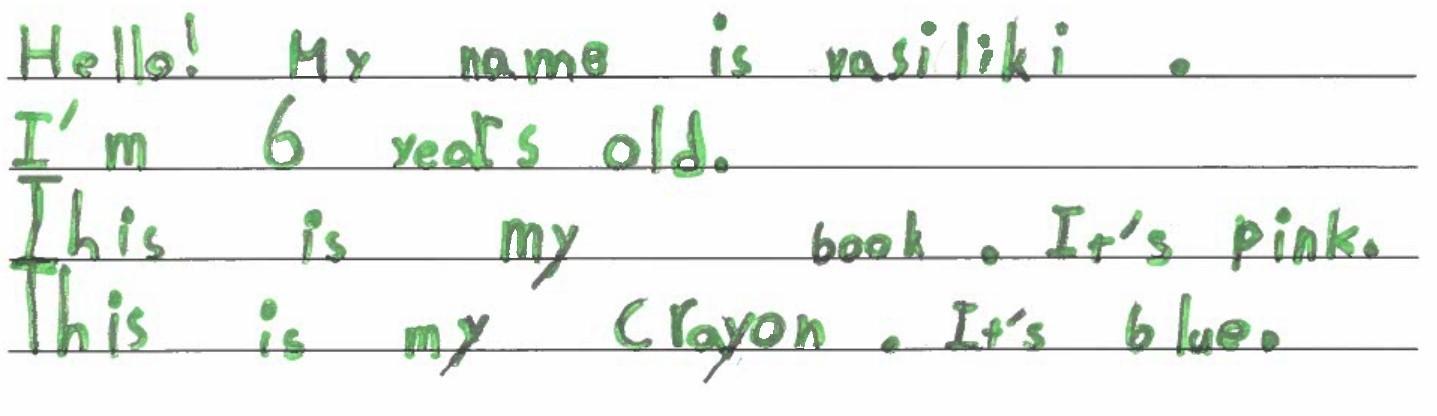 Hello! My name is vasiliki .
I'm 6 years old.
This is my book . It's pink.
This is my Crayon . It's blue.